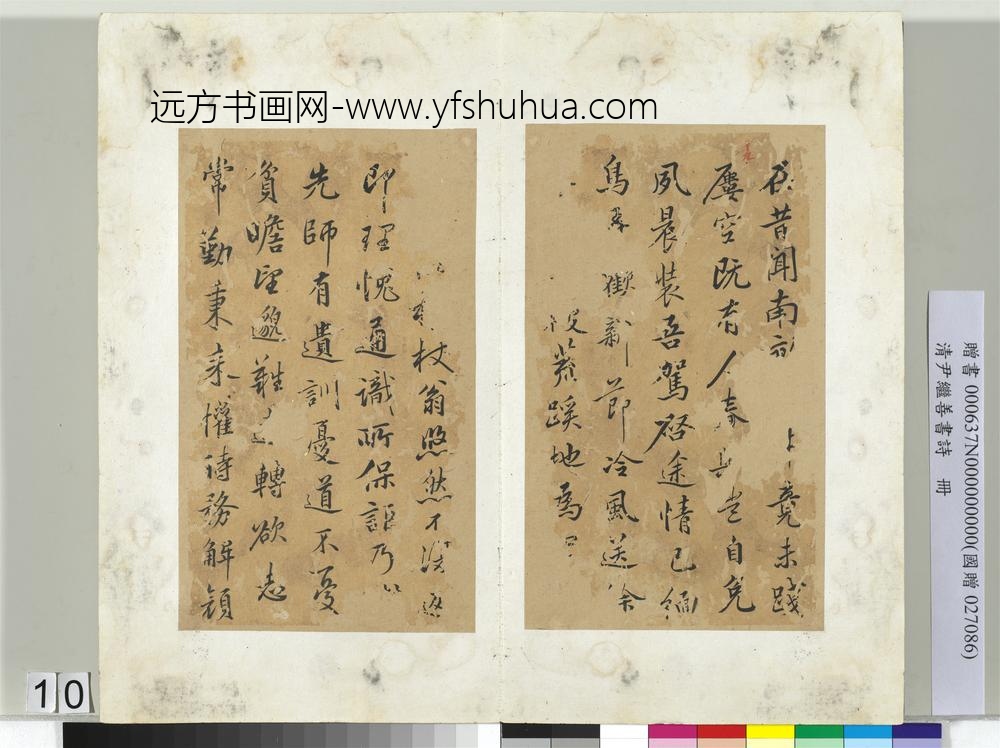 远方书画网-www.yfshuhua.com
在昔聞南竟未踐
屢空既有人春豈自免
夙晨裝吾駕啓途情已緬
鳥歡新節冷風送余
被荒蹊地爲
以杖翁悠然不復返
即理愧通識所保詎乃
先師有遺訓憂道不憂
貧瞻望邈難轉欲志
常勤秉耒懽時務解顏
贈書 000637N000000000(國贈 027086)
清尹繼善書詩 冊
10